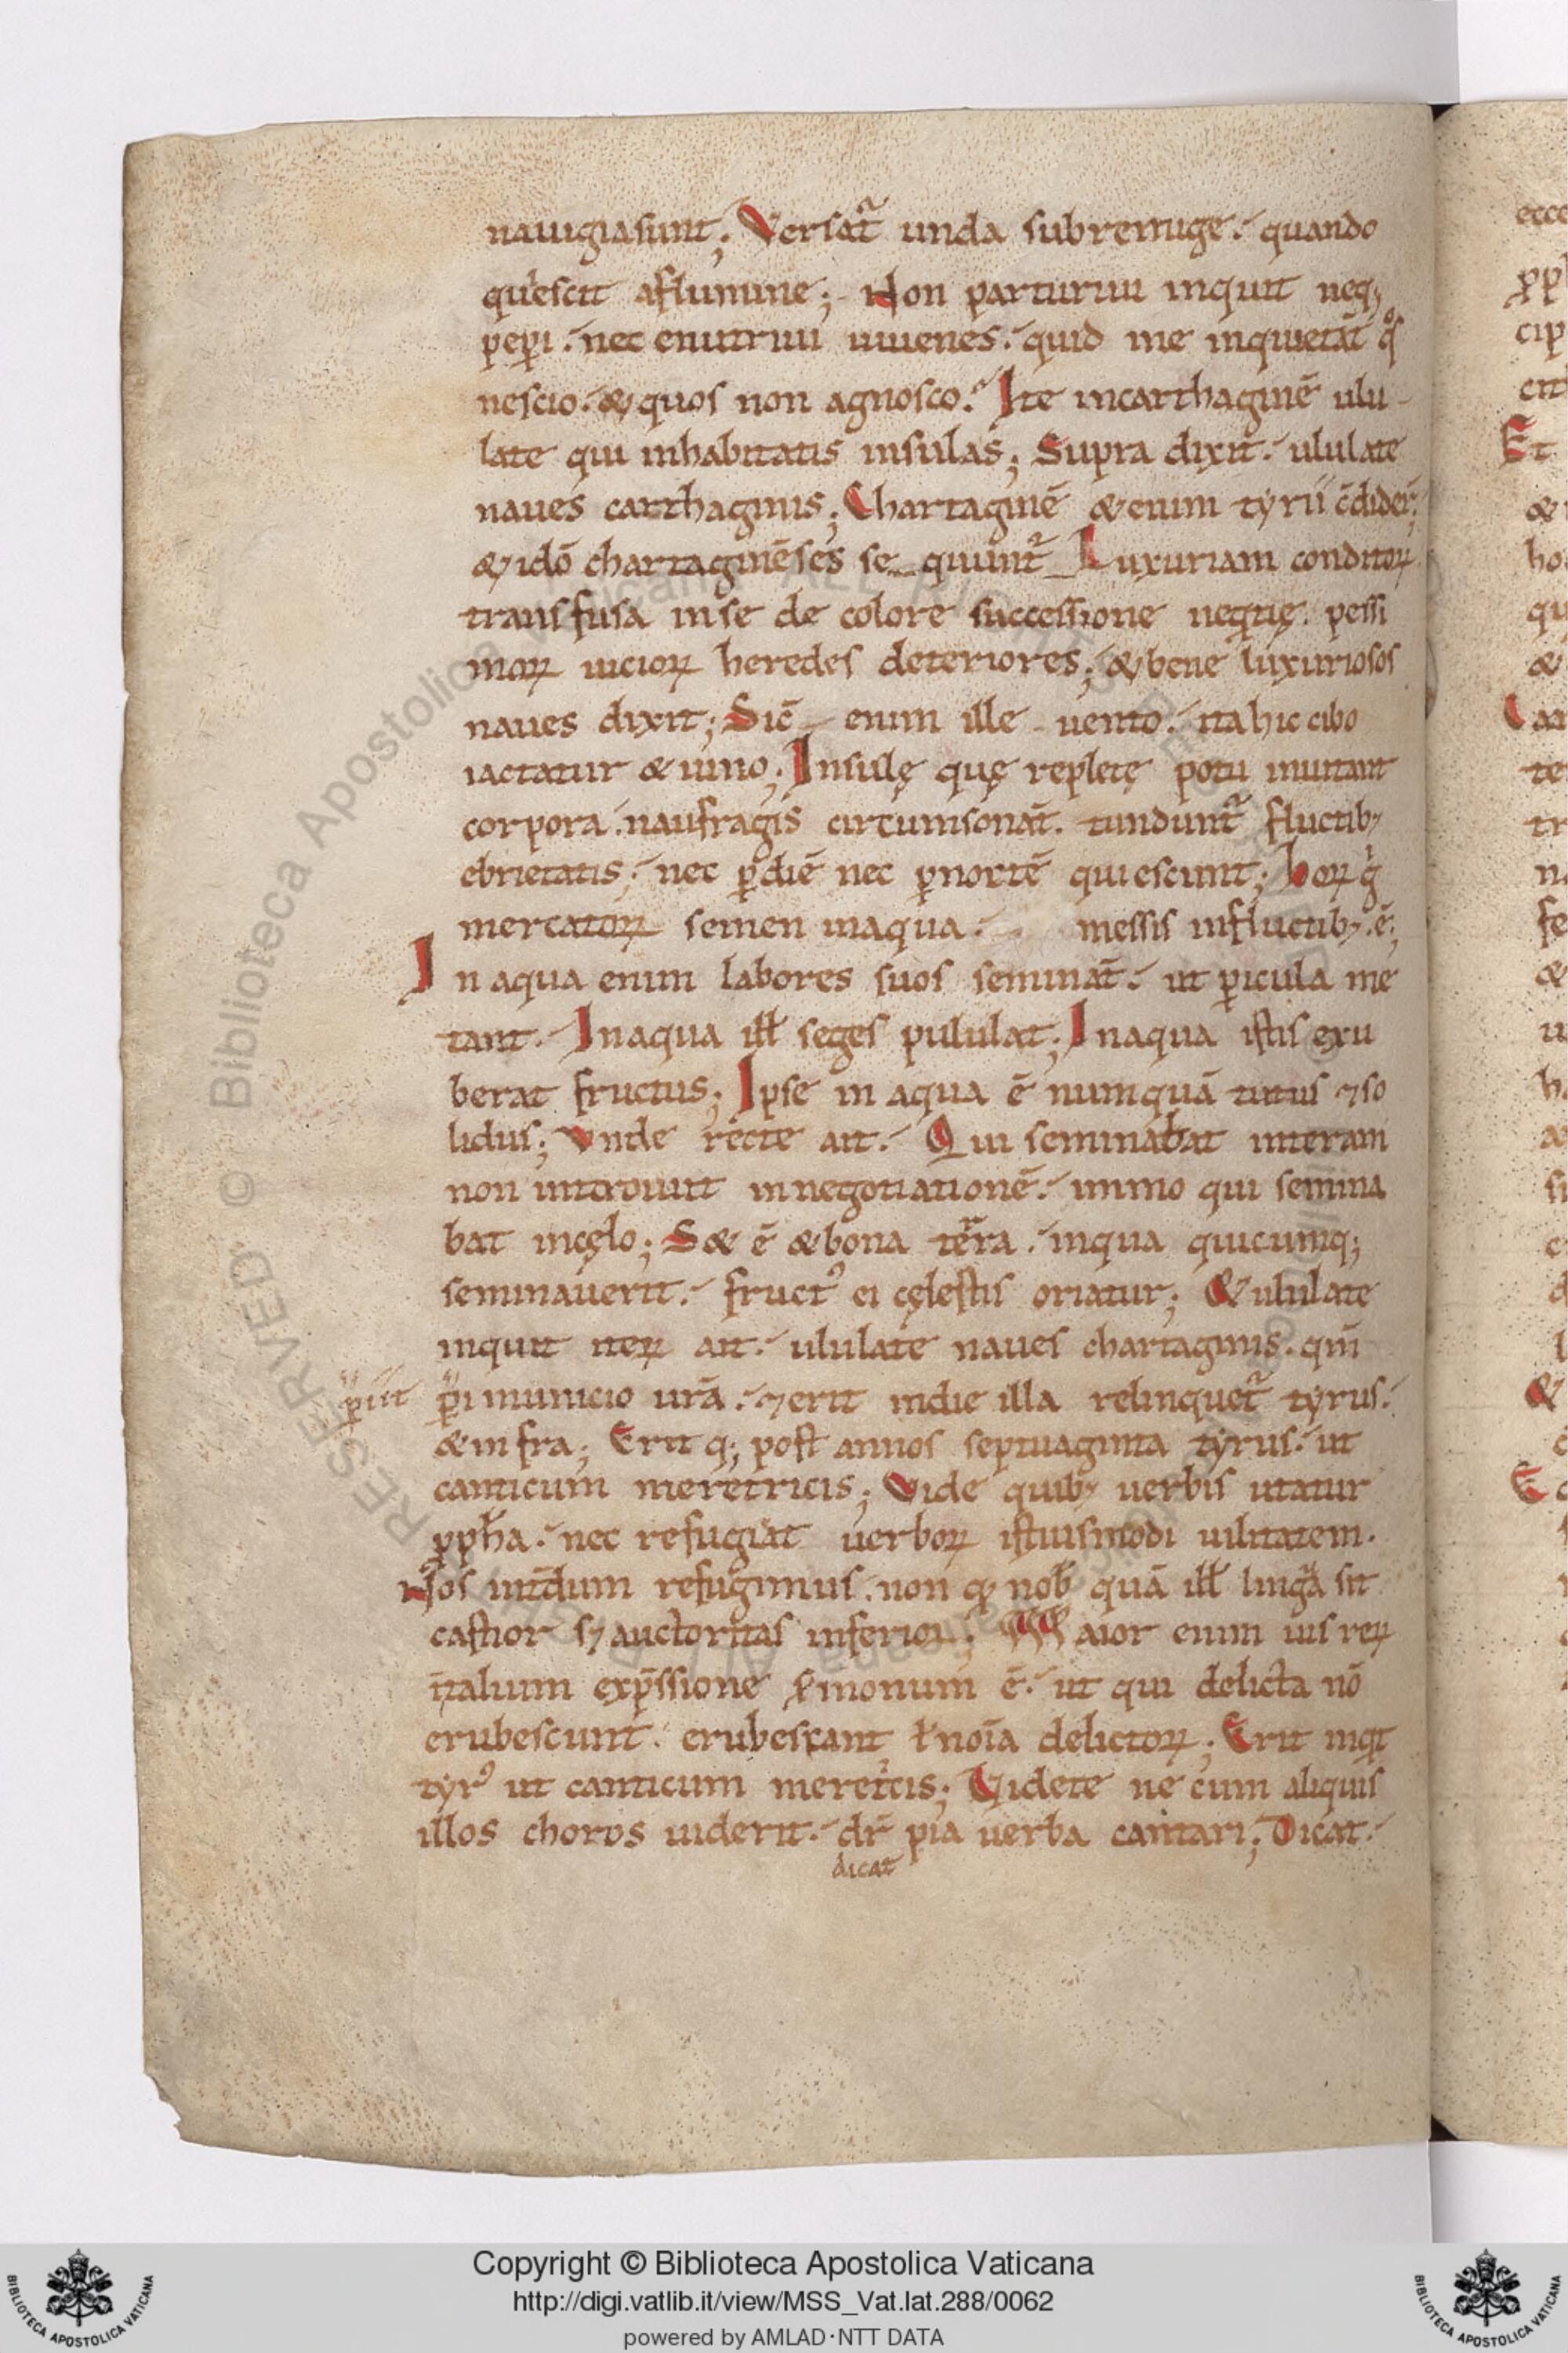 nauigiasunt; Versat᷑ unda subremige. quando
q̇escit aflumine; Non parturiui inquit neq;
peperi. nec enutriui iuuenes. quid me inquietāt qͦs
nescio. & quos non agnosco. Ite incarthaginē ulu-
late qui inhabitatis insulas; Supra dixit. ululate
naues carthaginis; Chartaginē & enim tyrii c̄dider̄;
& idō chartaginēses se quunt᷑ Luxuriam conditoꝝ
transfusa inse de colore successione nequitię. pessi
moꝝ uicioꝝ heredes deteriores; & bene luxuriosos
naues dixit; Sic̄ enim ille uento. ita hic cibo
iactatur & uino; Insulę quę repletę potu inuitant
corpora. naufragis circumsonāt. tundunt᷑ fluctib;
ebrietatis; nec ꝑdiē nec ꝑnoctē quiescunt; hoꝝ g̊
mercatoꝝ semen inaqua. messis influctib; ē;
In aqua enim labores suos seminat̄. ut ꝑicula me
tant. Inaqua ill̄ seges pululat; Inaqua istis exu
berat fructus; Ipse in aqua ē numquā tutus ⁊ so
lidus; Vnde recte ait. Qui seminabat interam
non introiuit innegotiationē. immo qui semina
bat incęlo; S& ē & bona terra. inqua quicumq;
seminauerit. fructꝰ ei cęlestis oriatur; & ululate
inquit iteꝝ ait. ululate naues chartaginis. qm̄
ꝑiit ꝑi municio ur̄a. ⁊ erit indie illa relinquet᷑ tyrus.
& infra; Erit q; post annos septuaginta tyrus. ut
canticum meretricis; Vide quib; uerbis utatur
ꝓph̄a. nec refugiat uerboꝝ istiusmodi uilitatem.
Nos int̄dum refugimus. non qꝫ nob̄ quā ill̄ linga sit
castior s; auctoritas inferior; Maior enim uis reꝝ
italium exp̄ssione s̄monum ē. ut qui delicta nō
erubescunt. erubescant ł noīa delictoꝝ; Erit inqt
tyrꝰ ut canticum meret̊cis; Videte ne cum aliquis
illos choros uiderit. dr̄ pia uerba cantari; Dicat.
dicat
Copyright © Biblioteca Apostolica Vaticana
http://digi.vatlib.it/view/MSS_Vat.lat.288/0062
powered by AMLAD·NTT DATA